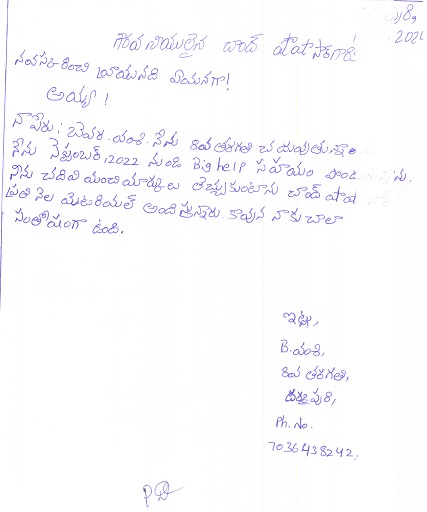 గౌరవనీయులైన చాంద్ పాషా సార్ గారికి
నమస్కరించి వ్రాయునది ఏమనగా!
అయ్యా!
నా పేరు: బెవర. వంశి. నేను 8వ తరగతి చదువుతున్నాను
నేను సెప్టెంబర్, 2022 నుండి Big help సహాయం
నేను చదివి మంచి మార్కులు తెచ్చుకుంటాను చాంద్ పాషా
ప్రతి నెల మెటీరియల్ అందిస్తున్నారు. కావున నాకు చాలా
సంతోషంగా ఉంది.
ఇట్లు,
B. వంశి,
8వ తరగతి,
Ph. No.
7036438242.